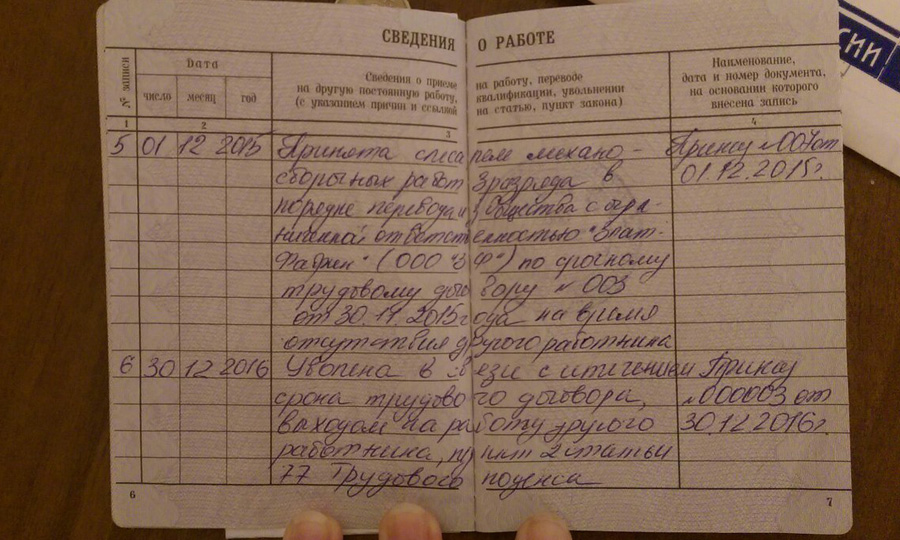 СВЕДЕНИЯ О РАБОТЕ
№ записи
Дата
число
месяц
год
Сведения о приеме на работу, переводе
на другую постоянную работу, квалификации, увольнении
(с указанием причин и ссылкой на статью, пункт закона)
Наименование,
дата и номер документа,
на основании которого
внесена запись
1 2 3 4
5 01 12 2015 Принята слесарем механо- Приказ №004 от
сборочных работ 3 разряда в 01.12.2015г.
порядке перевода из Общества с огра-
ниченной ответственностью "Злат-
" (ООО "ЗФ") по срочному
трудовому договору № 003
от 30.11.2015 года на время
отсутствия другого работника
6 30 12 2016 Уволена в связи с истечением Приказ
срока трудового договора, №000003 от
выходом на работу другого 30.12.2016г.
работника, пункт 2 статьи
77 Трудового кодекса
6
7
СИИ